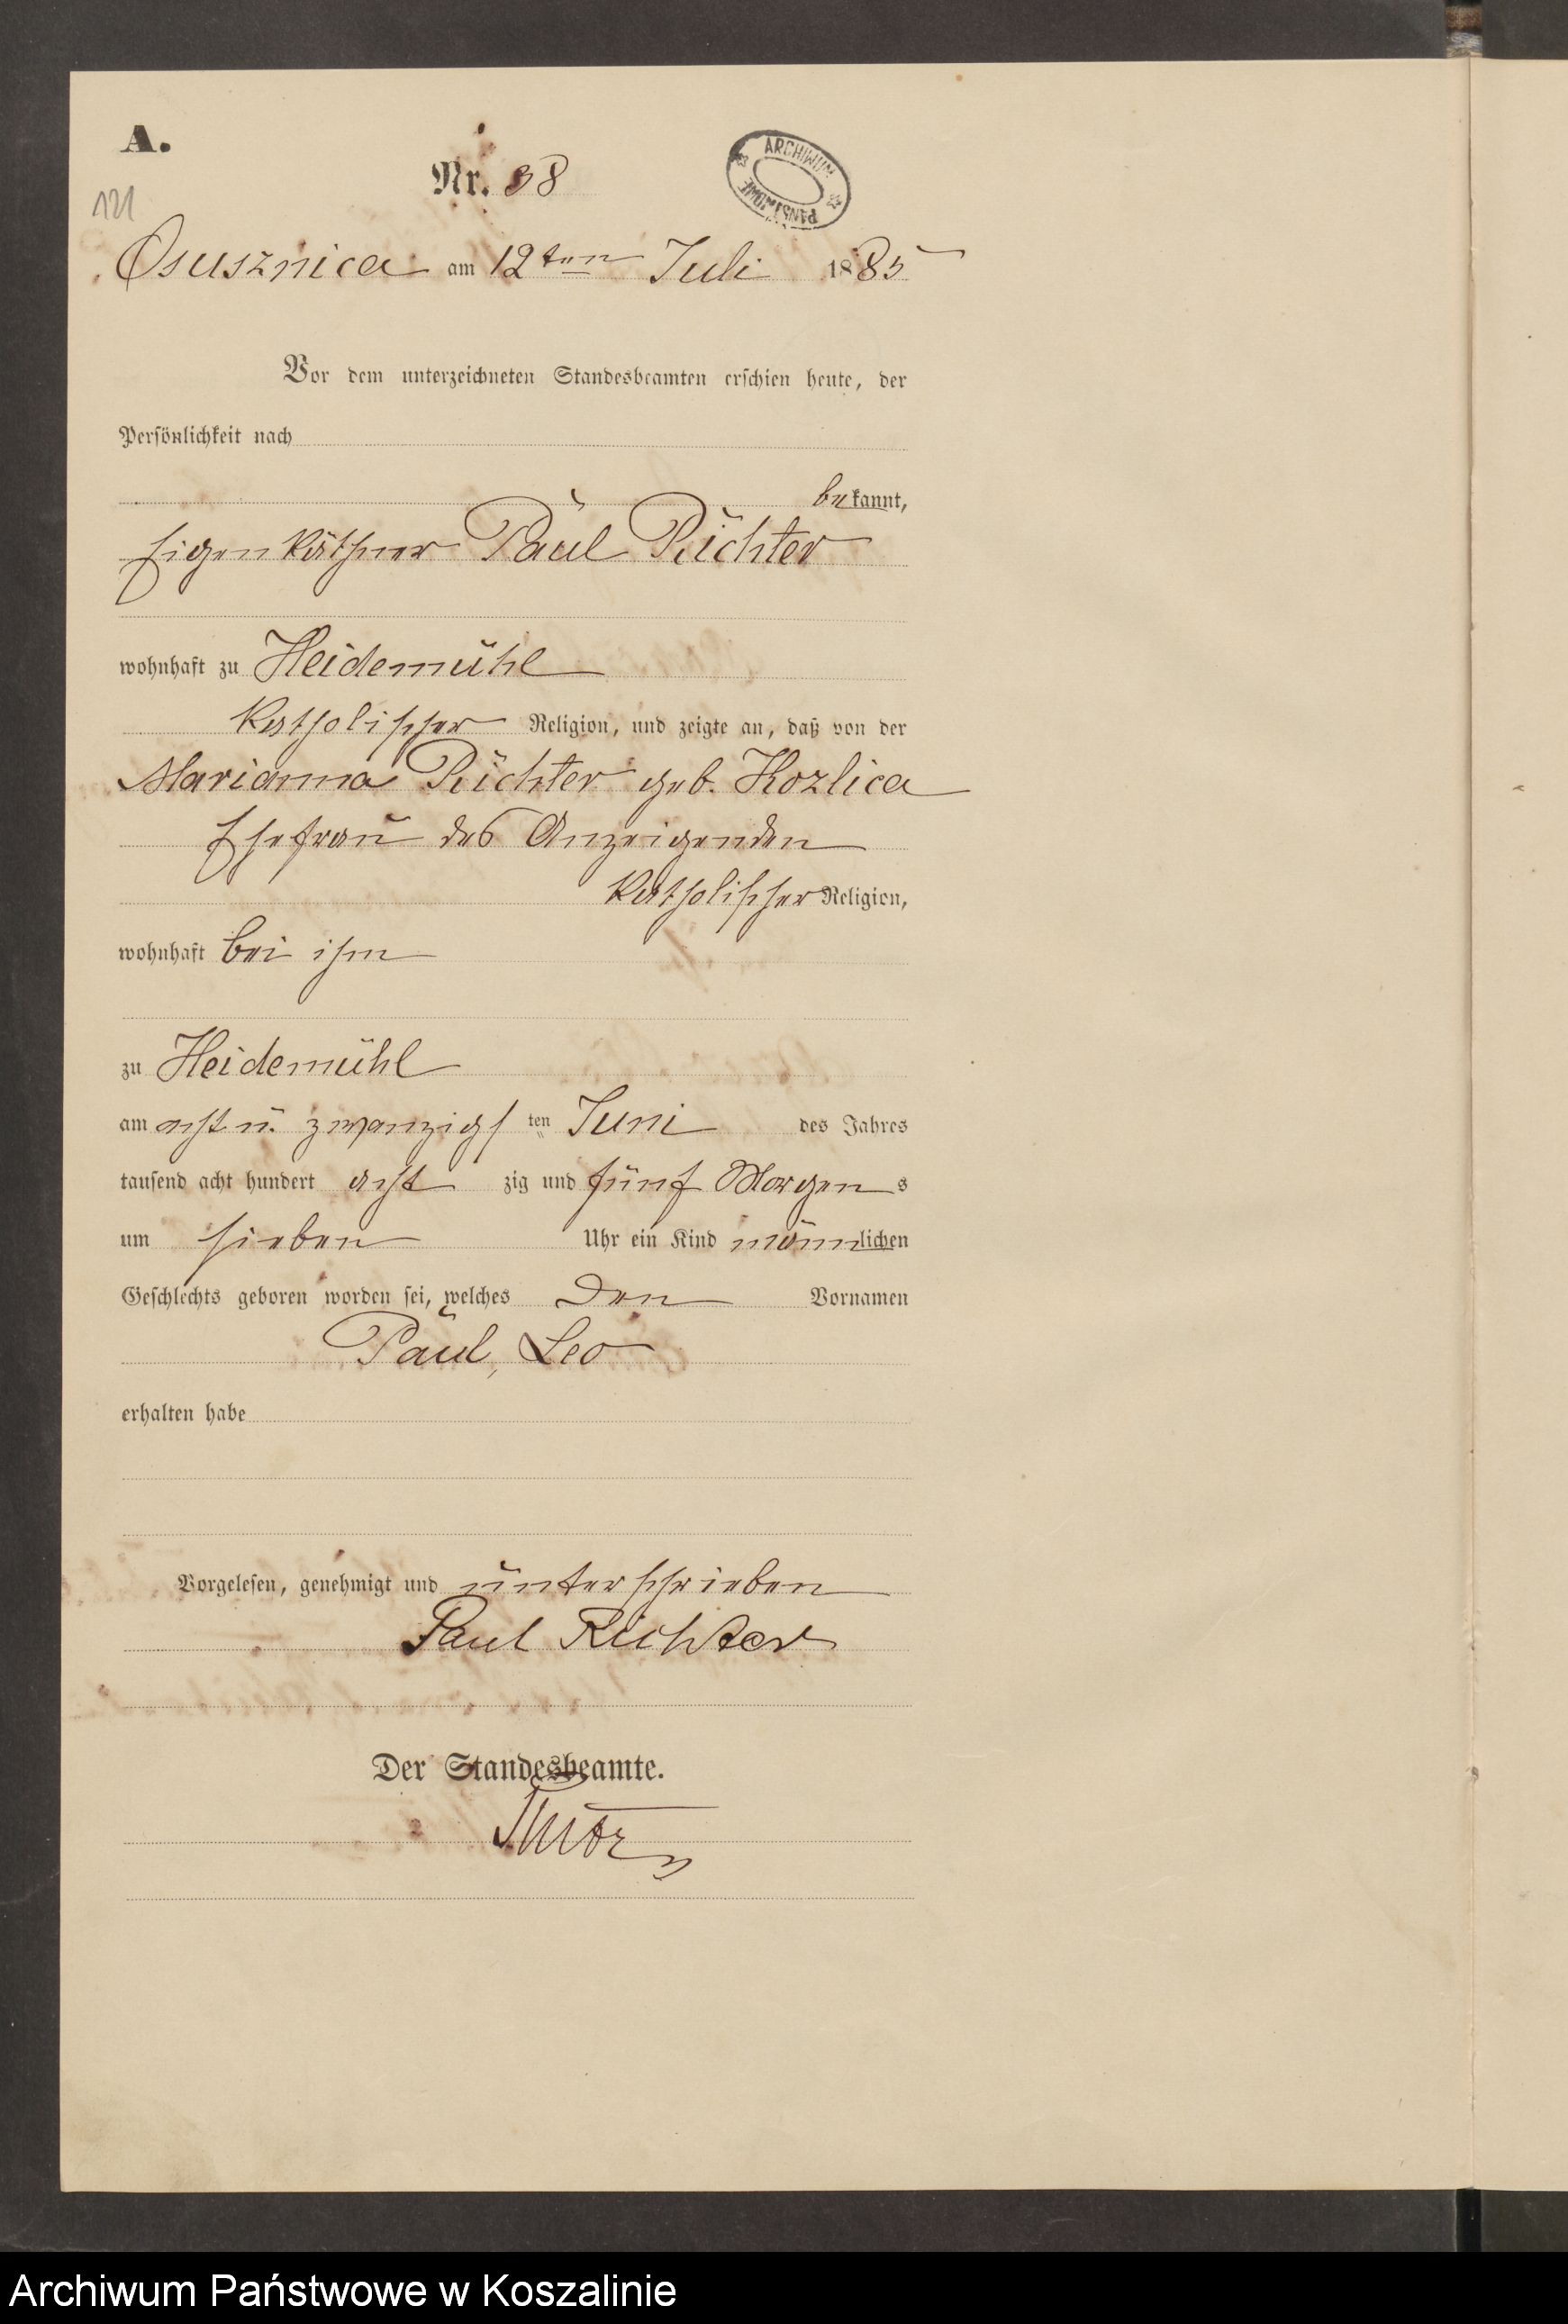 A.
Nr. 38
121
ARCHIWUM PAŃSTWOWE
Osusznica am 12ten Juli 1885
Vor dem unterzeichneten Standesbeamten erschien heute, der
Persönlichkeit nach
bekannt,
Eigenkäthner Paul Richter
wohnhaft zu Heidemühl
katholischer Religion, und zeigte an, daß von der
Marianna Richter geb. Kozlica
Ehefrau des Anzeigenden
katholischer Religion,
wohnhaft bei ihm
zu Heidemühl
am acht u. zwanzigsten Juni des Jahres
tausend acht hundert acht zig und fünf Morgens
um sieben Uhr ein Kind männlichen
Geschlechts geboren worden sei, welches den Vornamen
Paul, Leo
erhalten habe
Vorgelesen, genehmigt und unterschrieben
Paul Richter
Der Standesbeamte.
Archiwum Państwowe w Koszalinie